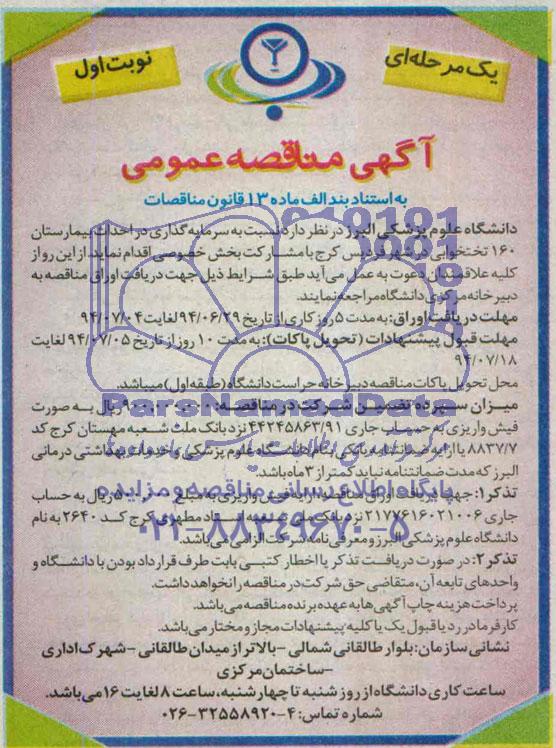 یک مرحله‌ای
نوبت اول
آگهی مناقصه عمومی
به استناد بند الف ماده ۱۳ قانون مناقصات
دانشگاه علوم پزشکی البرز در نظر دارد نسبت به سرمایه گذاری در احداث بیمارستان
۱۶۰ تختخوابی در شهر فردیس کرج با مشارکت بخش خصوصی اقدام نماید. از این رو از
کلیه علاقمندان دعوت به عمل می‌آید طبق شرایط ذیل جهت دریافت اوراق مناقصه به
دبیرخانه مرکزی دانشگاه مراجعه نمایند.
مهلت دریافت اوراق: به مدت ۵ روز کاری از تاریخ ۹۴/۰۶/۲۹ لغایت ۹۴/۰۷/۰۴
مهلت قبول پیشنهادات (تحویل پاکات): به مدت ۱۰ روز از تاریخ ۹۴/۰۷/۰۵ لغایت
۹۴/۰۷/۱۸
محل تحویل پاکات مناقصه دبیرخانه حراست دانشگاه (طبقه اول) میباشد.
میزان سپرده تضمین شرکت در مناقصه: ریال به صورت
فیش واریزی به حساب جاری ۴۴۲۴۵۸۶۳/۹۱ نزد بانک ملت شعبه مهستان کرج کد
۸۸۳۷/۷ یا ارایه ضمانتنامه بانکی بنام دانشگاه علوم پزشکی و خدمات بهداشتی درمانی
البرز که مدت ضمانتنامه نباید کمتر از ۳ ماه باشد.
تذکر۱: جهت دریافت اوراق مناقصه ارایه فیش واریزی به مبلغ ریال به حساب
جاری ۲۱۷۷۶۱۶۰۲۱۰۰۶ نزد بانک ملی شعبه استاد مطهری کرج کد ۲۶۴۰ به نام
دانشگاه علوم پزشکی البرز و معرفی نامه شرکت الزامی می‌باشد.
تذکر۲: در صورت دریافت تذکر یا اخطار کتبی بابت طرف قرارداد بودن با دانشگاه و
واحدهای تابعه آن، متقاضی حق شرکت در مناقصه را نخواهد داشت.
پرداخت هزینه چاپ آگهی ها به عهده برنده مناقصه می‌باشد.
کارفرما در رد یا قبول یک یا کلیه پیشنهادات مجاز و مختار می‌باشد.
نشانی سازمان: بلوار طالقانی شمالی – بالاتر از میدان طالقانی – شهرک اداری
– ساختمان مرکزی
ساعت کاری دانشگاه از روز شنبه تا چهارشنبه، ساعت ۸ لغایت ۱۶ می‌باشد.
شماره تماس: ۴-۳۲۵۵۸۹۲۰-۰۲۶
ParsNamadData
پایگاه اطلاع رسانی مناقصه و مزایده
۰۲۱-۸۸۳۴۹۶۷۰-۵